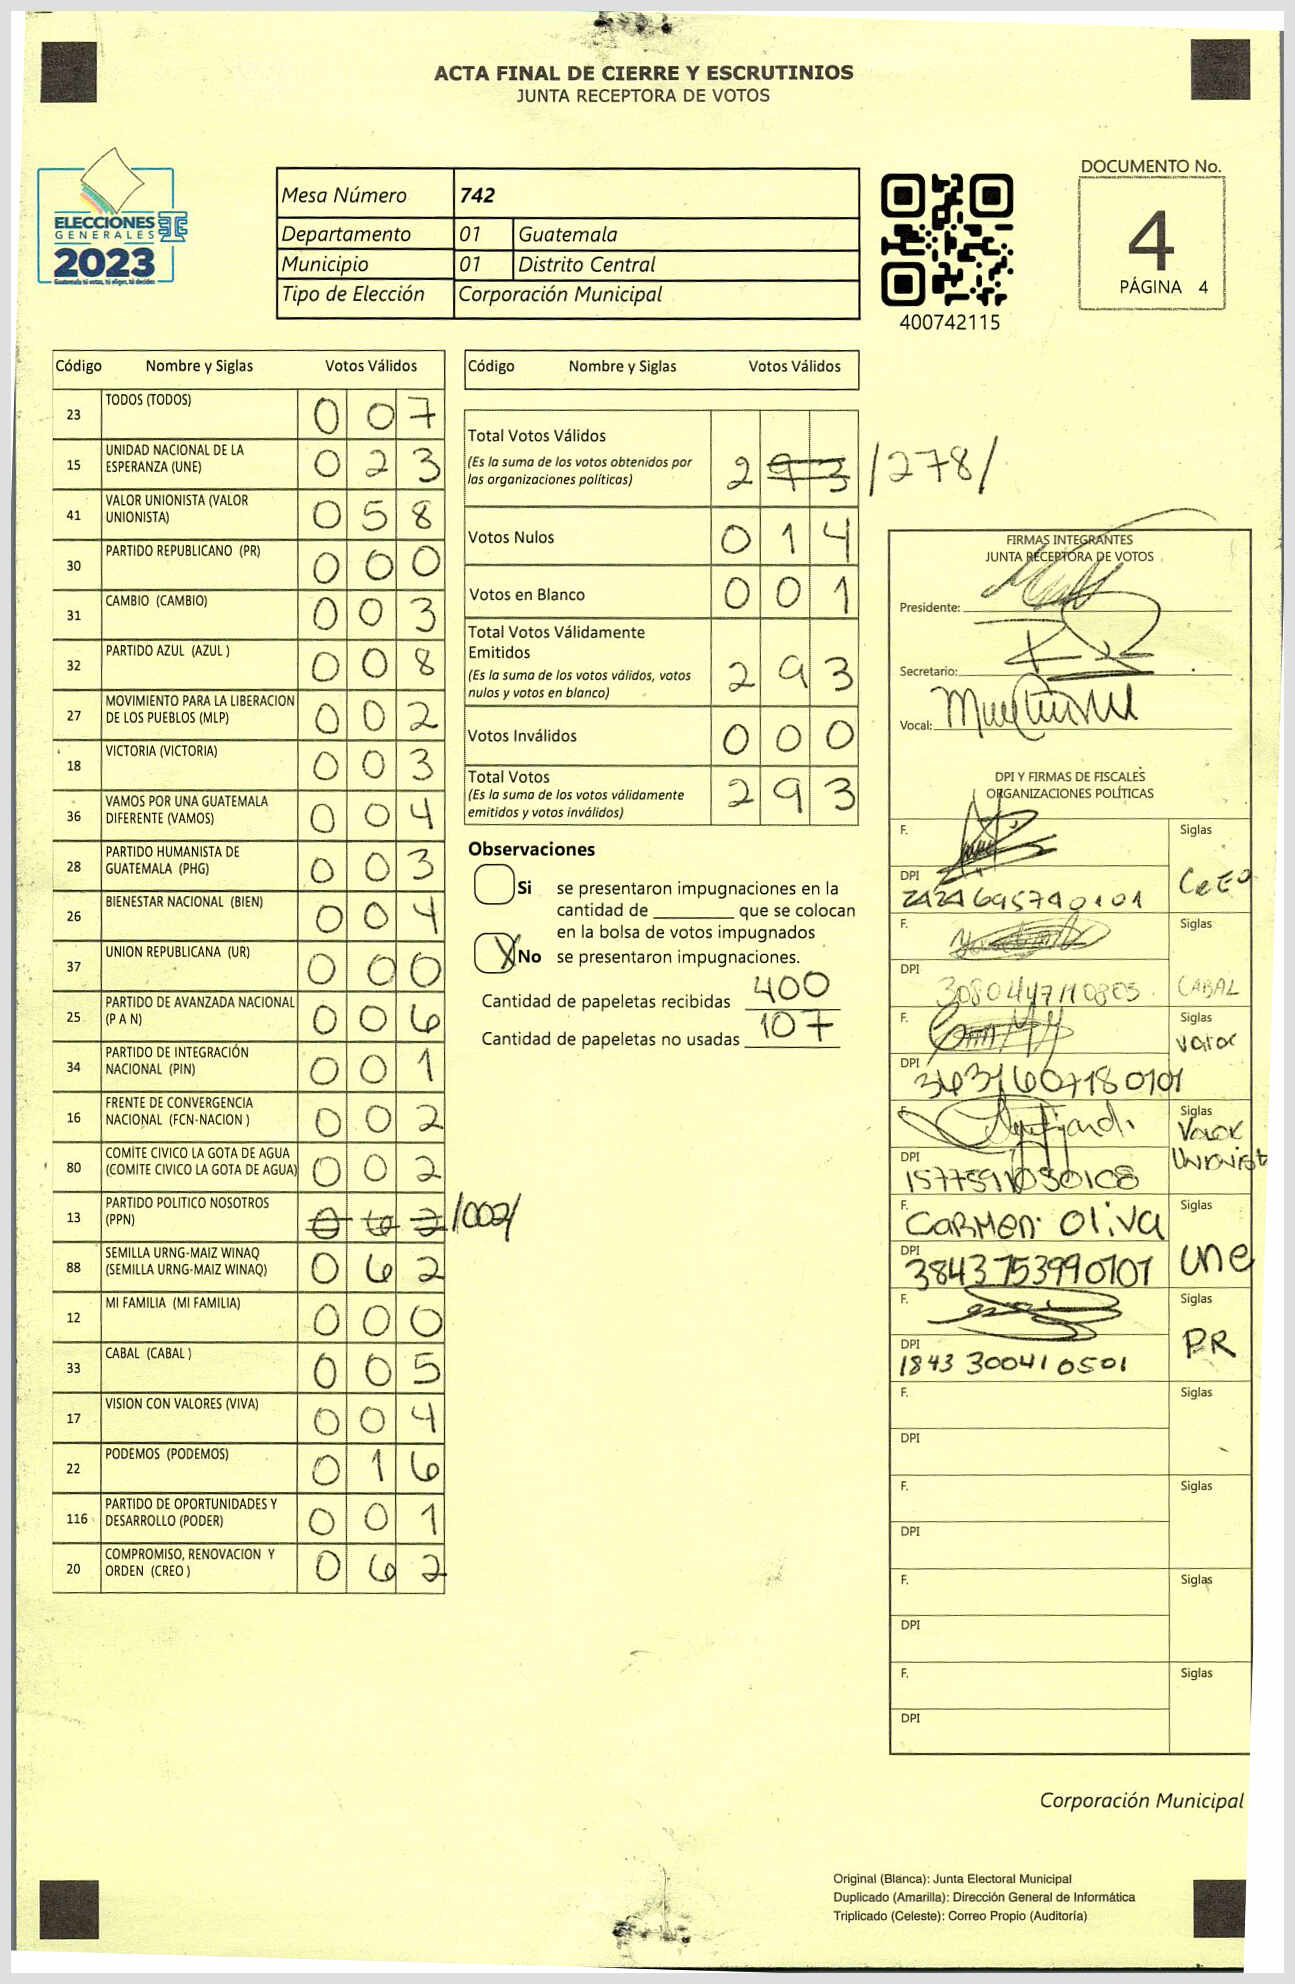 ACTA FINAL DE CIERRE Y ESCRUTINIOS
JUNTA RECEPTORA DE VOTOS
ELECCIONES
GENERALES
2023
Guatemala tú votas, tú eliges, tú decides
Mesa Número 742
Departamento 01 Guatemala
Municipio 01 Distrito Central
Tipo de Elección Corporación Municipal
400742115
DOCUMENTO No.
4
PÁGINA 4
Código Nombre y Siglas Votos Válidos
23 TODOS (TODOS) 0 0 7
15 UNIDAD NACIONAL DE LA ESPERANZA (UNE) 0 2 3
41 VALOR UNIONISTA (VALOR UNIONISTA) 0 5 8
30 PARTIDO REPUBLICANO (PR) 0 0 0
31 CAMBIO (CAMBIO) 0 0 3
32 PARTIDO AZUL (AZUL ) 0 0 8
27 MOVIMIENTO PARA LA LIBERACION DE LOS PUEBLOS (MLP) 0 0 2
18 VICTORIA (VICTORIA) 0 0 3
36 VAMOS POR UNA GUATEMALA DIFERENTE (VAMOS) 0 0 4
28 PARTIDO HUMANISTA DE GUATEMALA (PHG) 0 0 3
26 BIENESTAR NACIONAL (BIEN) 0 0 4
37 UNION REPUBLICANA (UR) 0 0 0
25 PARTIDO DE AVANZADA NACIONAL (P A N) 0 0 6
34 PARTIDO DE INTEGRACIÓN NACIONAL (PIN) 0 0 1
16 FRENTE DE CONVERGENCIA NACIONAL (FCN-NACION ) 0 0 2
80 COMITE CIVICO LA GOTA DE AGUA (COMITE CIVICO LA GOTA DE AGUA) 0 0 2
13 PARTIDO POLITICO NOSOTROS (PPN) 0 6 2 /002/
88 SEMILLA URNG-MAIZ WINAQ (SEMILLA URNG-MAIZ WINAQ) 0 6 2
12 MI FAMILIA (MI FAMILIA) 0 0 0
33 CABAL (CABAL ) 0 0 5
17 VISION CON VALORES (VIVA) 0 0 4
22 PODEMOS (PODEMOS) 0 1 6
116 PARTIDO DE OPORTUNIDADES Y DESARROLLO (PODER) 0 0 1
20 COMPROMISO, RENOVACION Y ORDEN (CREO ) 0 6 2
Código Nombre y Siglas Votos Válidos
Total Votos Válidos 2 9 3 /278/
(Es la suma de los votos obtenidos por
las organizaciones políticas)
Votos Nulos 0 1 4
Votos en Blanco 0 0 1
Total Votos Válidamente
Emitidos 2 9 3
(Es la suma de los votos válidos, votos
nulos y votos en blanco)
Votos Inválidos 0 0 0
Total Votos 2 9 3
(Es la suma de los votos válidamente
emitidos y votos inválidos)
Observaciones
Si se presentaron impugnaciones en la
cantidad de ________ que se colocan
en la bolsa de votos impugnados
X No se presentaron impugnaciones.
Cantidad de papeletas recibidas 400
Cantidad de papeletas no usadas 107
FIRMAS INTEGRANTES
JUNTA RECEPTORA DE VOTOS
Presidente:
Secretario:
Vocal:
DPI Y FIRMAS DE FISCALES
ORGANIZACIONES POLÍTICAS
F. Siglas
DPI CREO
F. Siglas
DPI CABAL
F. Siglas
Valor
DPI 3431607180101
Siglas
Valor
DPI Unionist
1577591050108
F. Carmen Oliva Siglas
DPI 3843753990101 une
F. Siglas
PR
DPI 1843 30041 0501
F. Siglas
DPI
F. Siglas
DPI
F. Siglas
DPI
F. Siglas
DPI
Corporación Municipal
Original (Blanca): Junta Electoral Municipal
Duplicado (Amarilla): Dirección General de Informática
Triplicado (Celeste): Correo Propio (Auditoría)